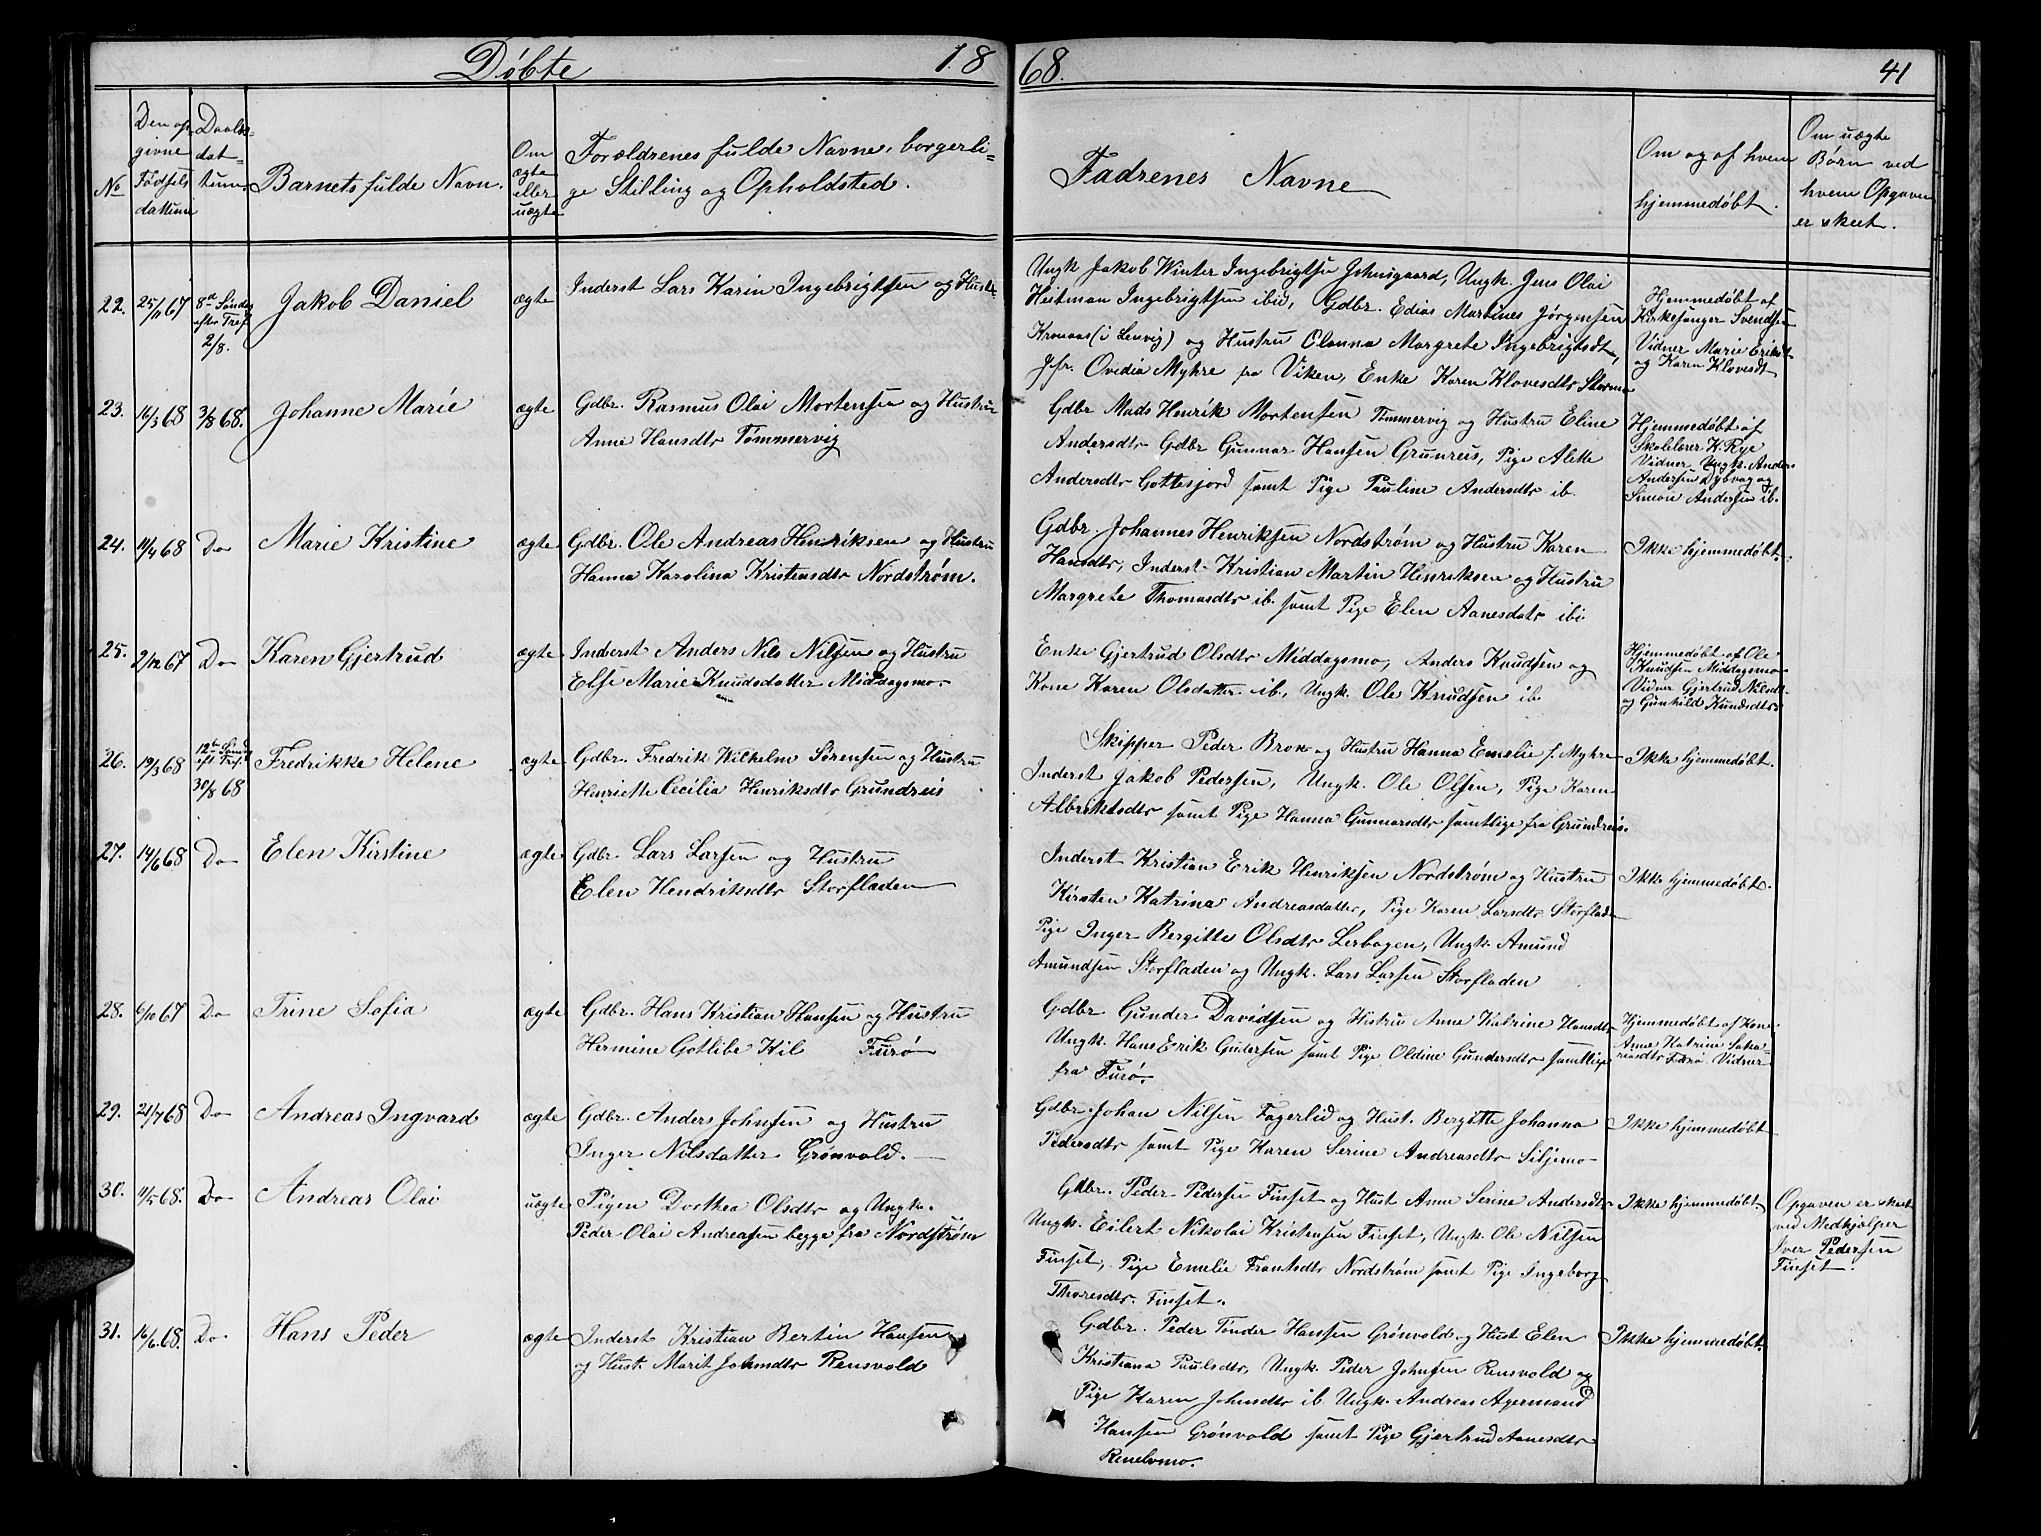 Døbte 1868. 41
No
Den op-
givne
Fødsels
dattum
Daabs-
dat-
tum
Barnets fulde Navn.
Om
ægte
eller
uægte
Forældrenes fulde Navne, borgerli-
ge Stilling og Opholdsted.
Fadrenes Navne
Om og af hvem
hjemmedøbt.
Om uægte
Børn ved
hvem Opgaven
er skeet.
22. 25/11 67
8de Søndag
efter Tref.
2/8.
Jakob Daniel
ægte
Inderst Lars Karin Ingebrigtsen og Hustr
Ungk Jakob Winter Ingebrigtsen Johnsgaard, Ungk. Jens Olai
Heitman Ingebrigtsen ibid, Gdbr. Edias Martines Jørgensen
(i Lenvig) og Hustru Olanna Margrete Ingebrigtsdt,
Jfr. Ovidia Myhre fra Viken, Enke Karen Klovesdtr
Hjemmedøbt af
Kirkesanger Svendsen
Vidner Marie Eriksdt
og Karen Klovesdt
23. 16/3 68 3/8 68.
Johanne Marie
ægte
Gdbr. Rasmus Olai Mortensen og Hustru
Anne Hansdtr Tømmervig
Gdbr Mads Henrik Mortensen Tømmervig og Hustru Eline
Andersdtr Gdbr Gunnar Hansen Grunreis, Pige Alette
Andersdtr Gottesjord samt Pige Pauline Andersdtr ib.
Hjemmedøbt af
Skolelærer K. Rye
Vidner Ungk. Anders
Andersen Dybvag og
Simon Andersen ib.
24. 11/4 68 Do
Marie Kristine
ægte
Gdbr. Ole Andreas Henriksen og Hustru
Hanna Karolina Kristensdtr Nordstrøm.
Gdbr. Johannes Henriksen Nordstrøm og Hustru Karen
Hansdtr, Inderst Kristian Martin Henriksen og Hustru
Margrete Thomasdtr ib. samt Pige Elen Aanesdatr ibi
Ikke hjemmedøbt.
25. 2/12 67 Do
Karen Gjertrud
ægte
Inderst Anders Nils Nilsen og Hustru
Else Marie Knudsdatter Middagsmo.
Enke Gjertrud Olsdtr Middagsmo, Anders Knudsen og
Kone Karen Olsdatter ib., Ungk. Ole Knudsen ib.
Hjemmedøbt af Ole
Knudsen Middagsmo
Vidner Gjertrud Nilsdt.
og Gunhild Knudsdtr.
26. 19/3 68
12te Sønd
eft Tref.
30/8 68
Fredrikke Helene
ægte
Gdbr. Fredrik Wilhelm Sørensen og Hustru
Henriette Cecilia Henriksdtr Grundreis
Skipper Peder Brox og Hustru Hanna Emelie f. Myhre
Inderst Jakob Pedersen, Ungk. Ole Olsen, Pige Karen
Albriktsdtr samt Pige Hanna Gunnarsdtr samtlige fra Grundreis.
Ikke hjemmedøbt.
27. 14/6 68 Do
Elen Kirstine
ægte
Gdbr. Lars Larsen og Hustru
Elen Hendriksdtr Storfladen
Inderst Kristian Erik Henriksen Nordstrøm og Hustru
Kirsten Katrina Andreasdatter, Pige Karen Larsdtr Storflade
Pige Inger Bergitte Olsdtr Lerbagen, Ungk. Amund
Amundsen Storfladen og Ungk. Lars Larsen Storfladen
Ikke hjemmedøbt.
28. 6/10 67 Do
Trine Sofia
ægte
Gdbr. Hans Kristian Hansen og Hustru
Hermine Gotlibe Kil Furø
Gdbr Gunder Davidsen og Hustru Anne Katrine Hansdtr
Ungk. Hans Erik Gudersen samt Pige Oldine Gundersdtr samtlige
fra Furø.
Hjemmedøbt af Kone
Anne Katrine Saka-
riasdtr Furø Vidner
29. 21/7 68 Do
Andreas Ingvard
ægte
Gdbr. Anders Johnsen og Hustru
Inger Nilsdatter Grønvold.
Gdbr. Johan Nilsen Fagerlid og Hust. Bergitte Johanna
Pedersdtr samt Pige Karen Serine Andreasdtr Siljemo
Ikke hjemmedøbt
30. 11/5 68. Do
Andreas Olai
uægte
Pigen Dorthea Olsdtr og Ungk.
Peder Olai Andreasen begge fra Nordstrøm
Gdbr. Peder Pedersen Finset og Hust Anne Serine Andersdtr
Ungk. Eilert Nikolai Kristensen Finset, Ungk Ole Nilsen
Finset, Pige Emelie Frantsdtr Nordstrøm samt Pige Ingeborg
Thoresdtr. Finset.
Ikke hjemmedøbt
Opgaven er skeet
ved Medhjælper
Iver Pedersen
Finset.
31. 16/6. 68. Do.
Hans Peder
ægte
Inderst Kristian Bertin Hansen
og Hust. Marit Johnsdtr Rensvold
Gdbr. Peder Tønder Hansen Grønvold og Hust Elen
Kristiana Paulsdtr, Ungk. Peder Johnsen Rensvold og
Pige Karen Johnsdtr ib Ungk. Andreas Agermand
Hansen Grønvold samt Pige Gjertrud Aanesdtr
Renelvmo.
Ikke hjemmedøbt